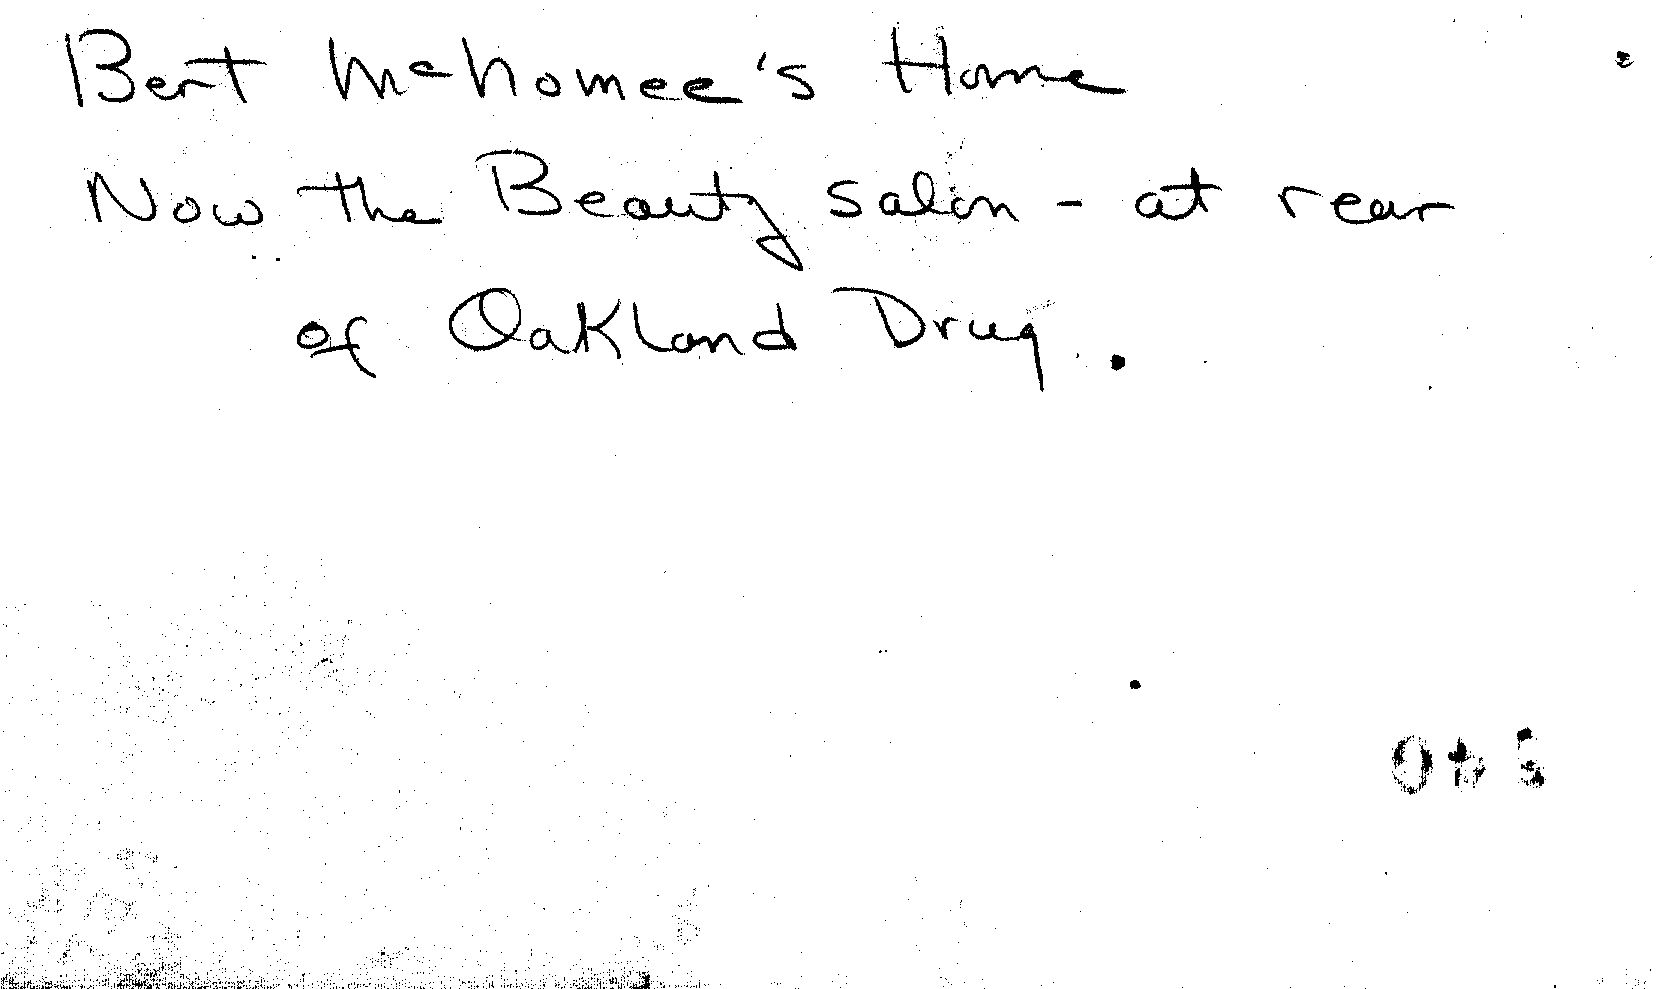 Bert McNomee's Home
Now the Beauty salon - at rear
of Oakland Drug.